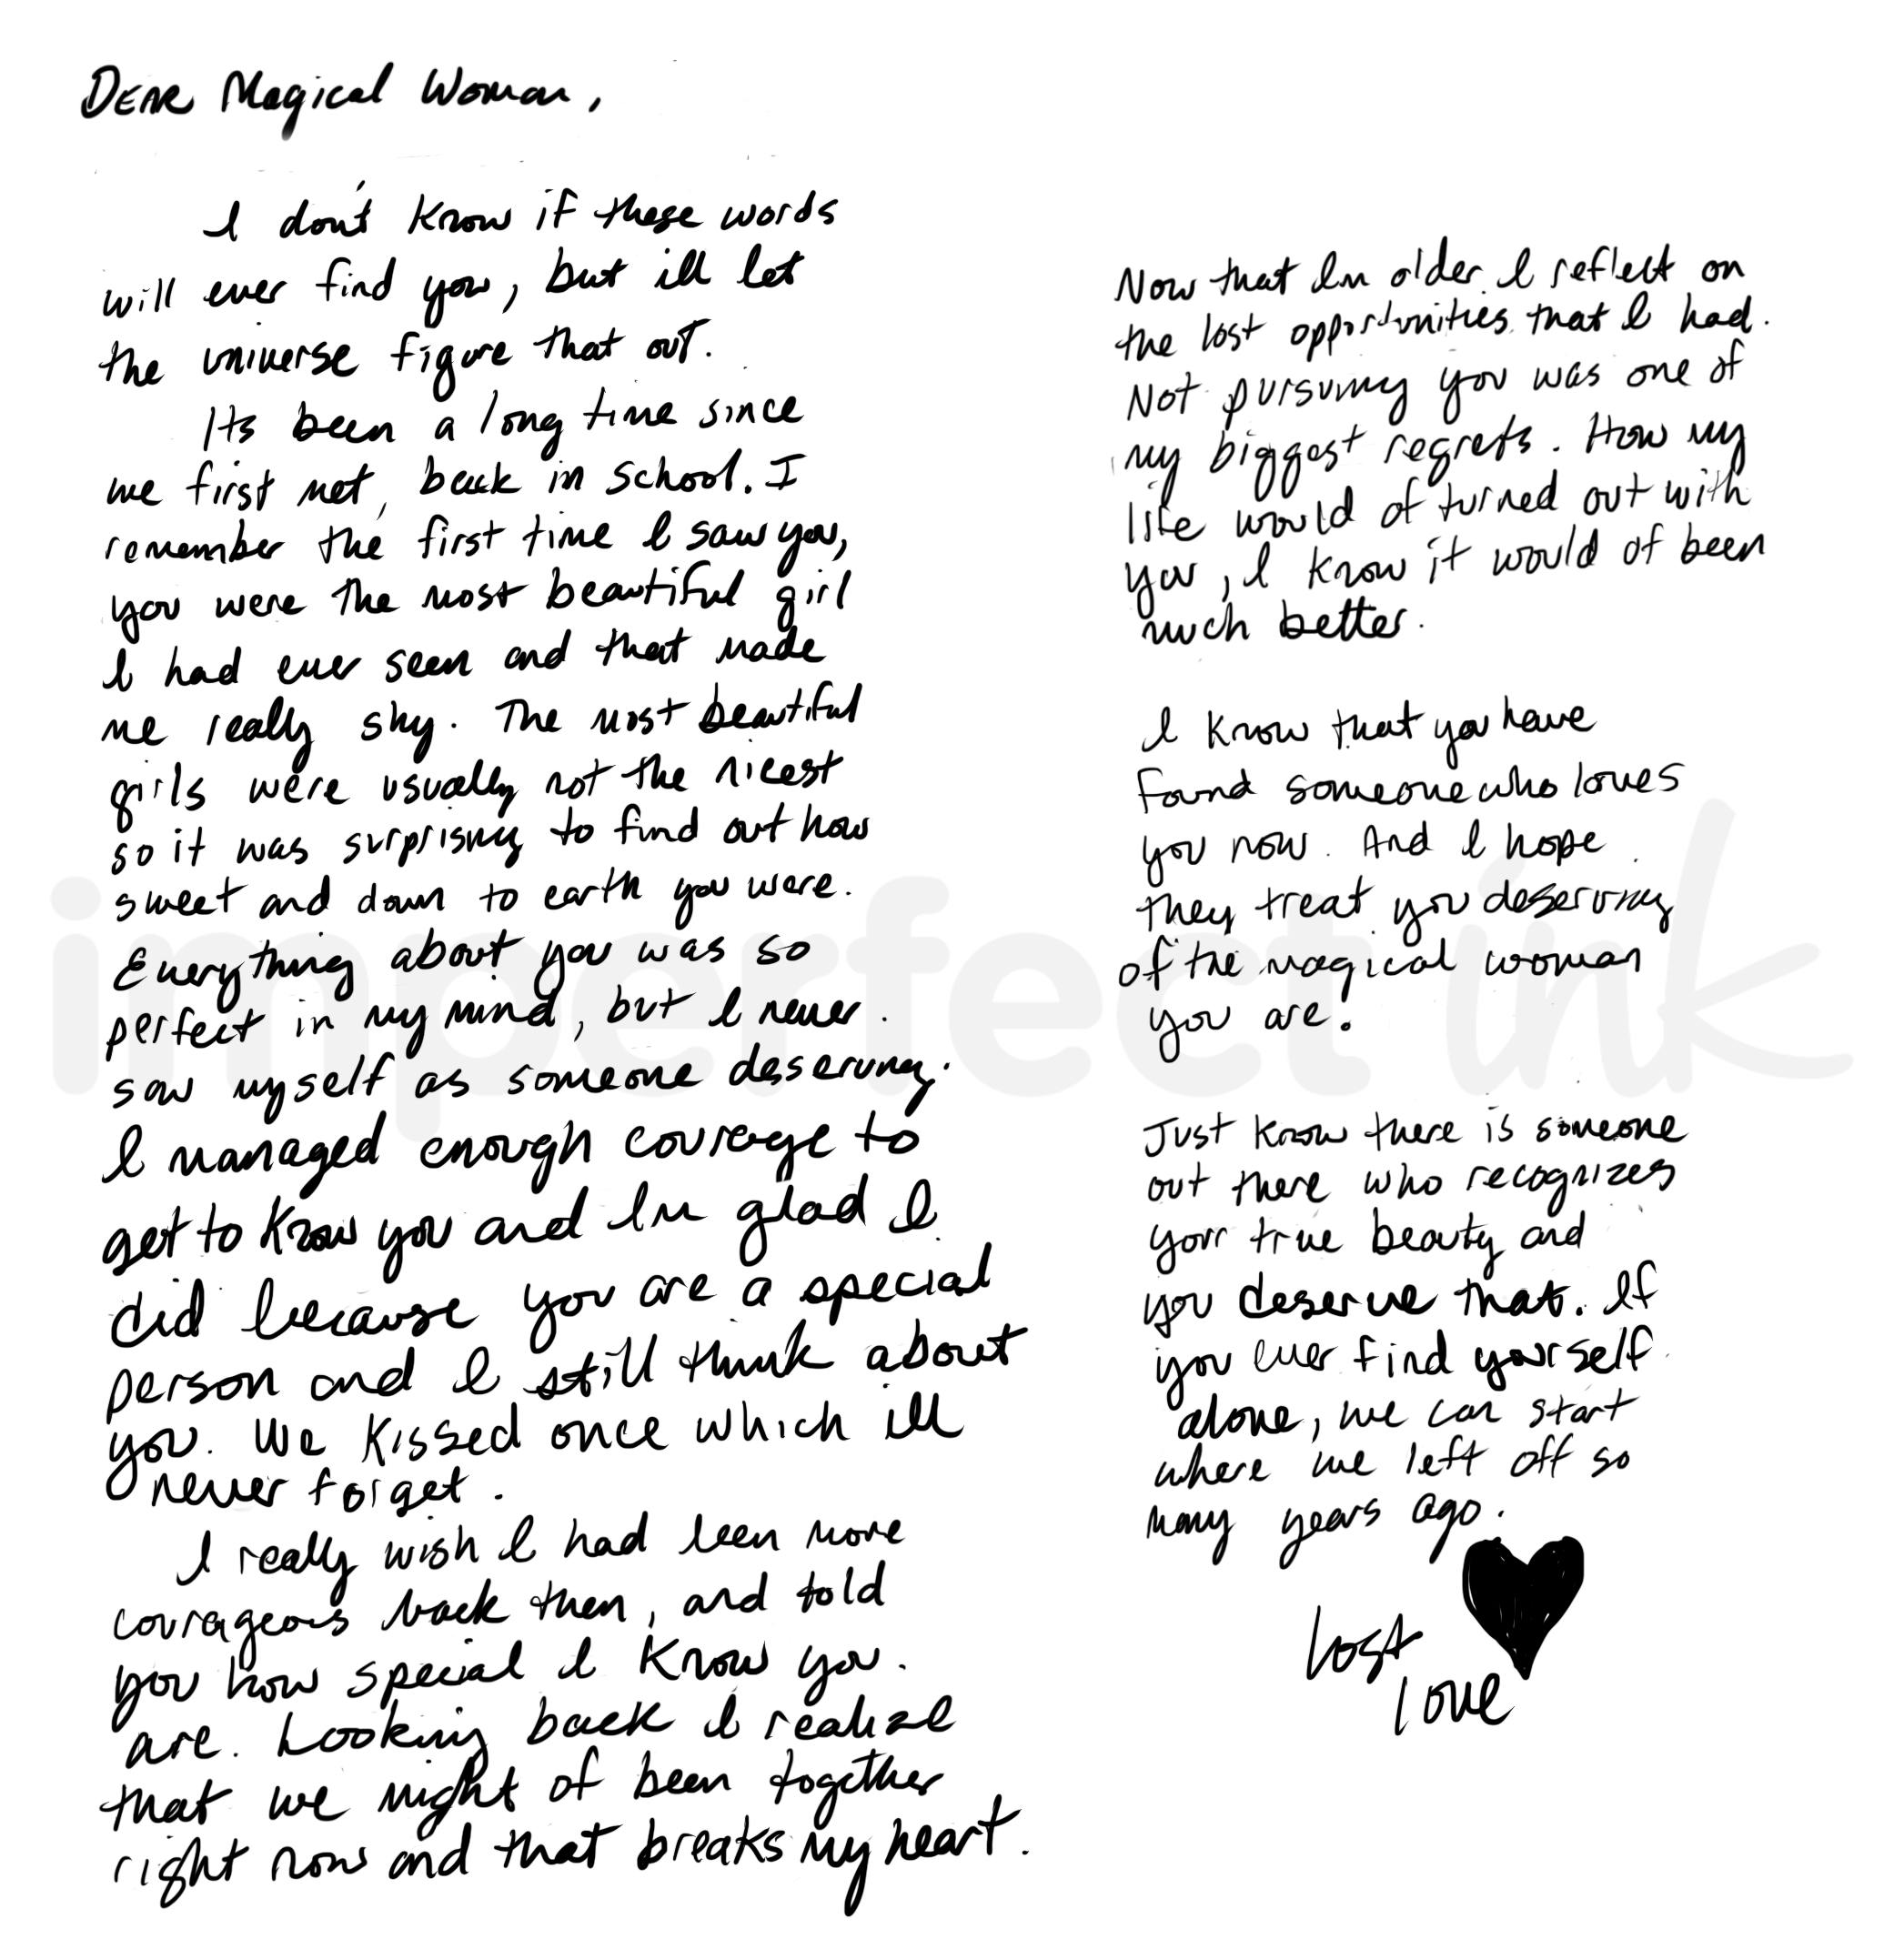 DEAR Magical Woman,
I don't know if these words
will ever find you, but ill let
the universe figure that out.
Its been a long time since
we first met, back in school. I
remember the first time I saw you,
you were the most beautiful girl
I had ever seen and that made
me really shy. The most beautiful
girls were usually not the nicest
so it was surprising to find out how
sweet and down to earth you were.
Everything about you was so
perfect in my mind, but I never
saw myself as someone deserving.
I managed enough courage to
get to know you and Im glad I
did because you are a special
person and I still think about
you. We kissed once which ill
never forget.
I really wish I had been more
courageous back then, and told
you how special I know you
are. Looking back I realize
that we might of been together
right now and that breaks my heart.
Now that Im older I reflect on
the lost opportunities that I had.
Not pursuing you was one of
my biggest regrets. How my
life would of turned out with
you, I know it would of been
much better.
I know that you have
found someone who loves
you now. And I hope
they treat you deserving
of the magical woman
you are.
Just know there is someone
out there who recognizes
your true beauty and
you deserve that. If
you ever find yourself
alone, we can start
where we left off so
many years ago.
lost
love
imperfect ink